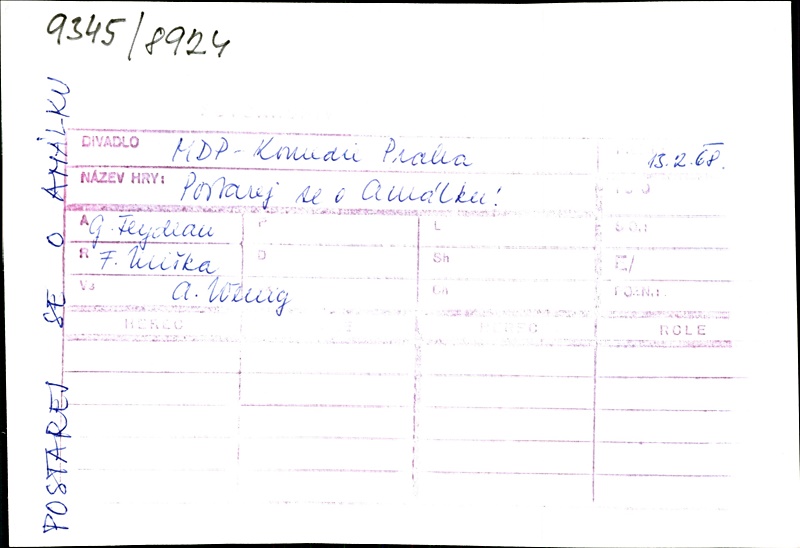 9345/8924
POSTAREJ SE O AMÁLKU
DIVADLO MDP - Komedie Praha 13.2.68.
NÁZEV HRY: Postarej se o Amálku!
A G. Feydeau F L
R F. Miška D Sh
Vs A. Wenig
HEREC HEREC ROLE